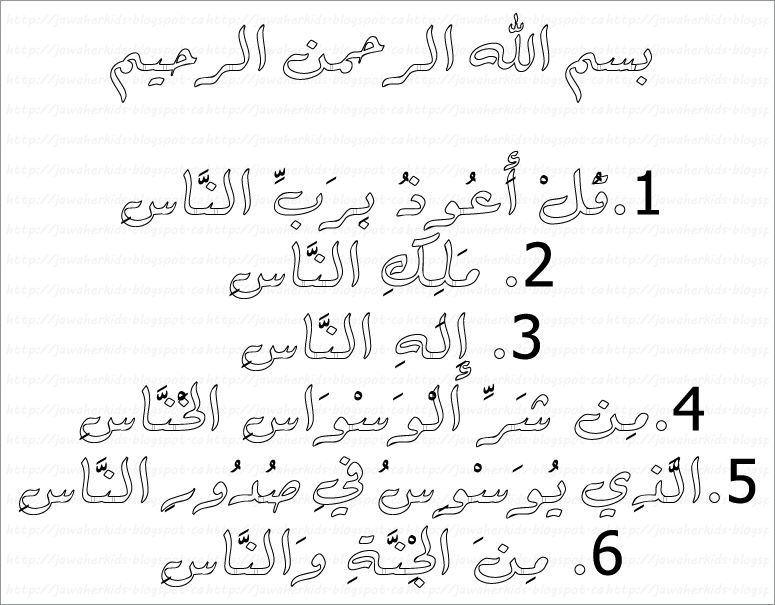 بسم الله الرحمن الرحيم
1.قُلْ أَعُوذُ بِرَبِّ النَّاسِ
2. مَلِكِ النَّاسِ
3. إِلَهِ النَّاسِ
4.مِن شَرِّ الْوَسْوَاسِ الْخَنَّاسِ
5.الَّذِي يُوَسْوِسُ فِي صُدُورِ النَّاسِ
6. مِنَ الْجِنَّةِ وَالنَّاسِ
http://jawaherkids.blogspot.ca